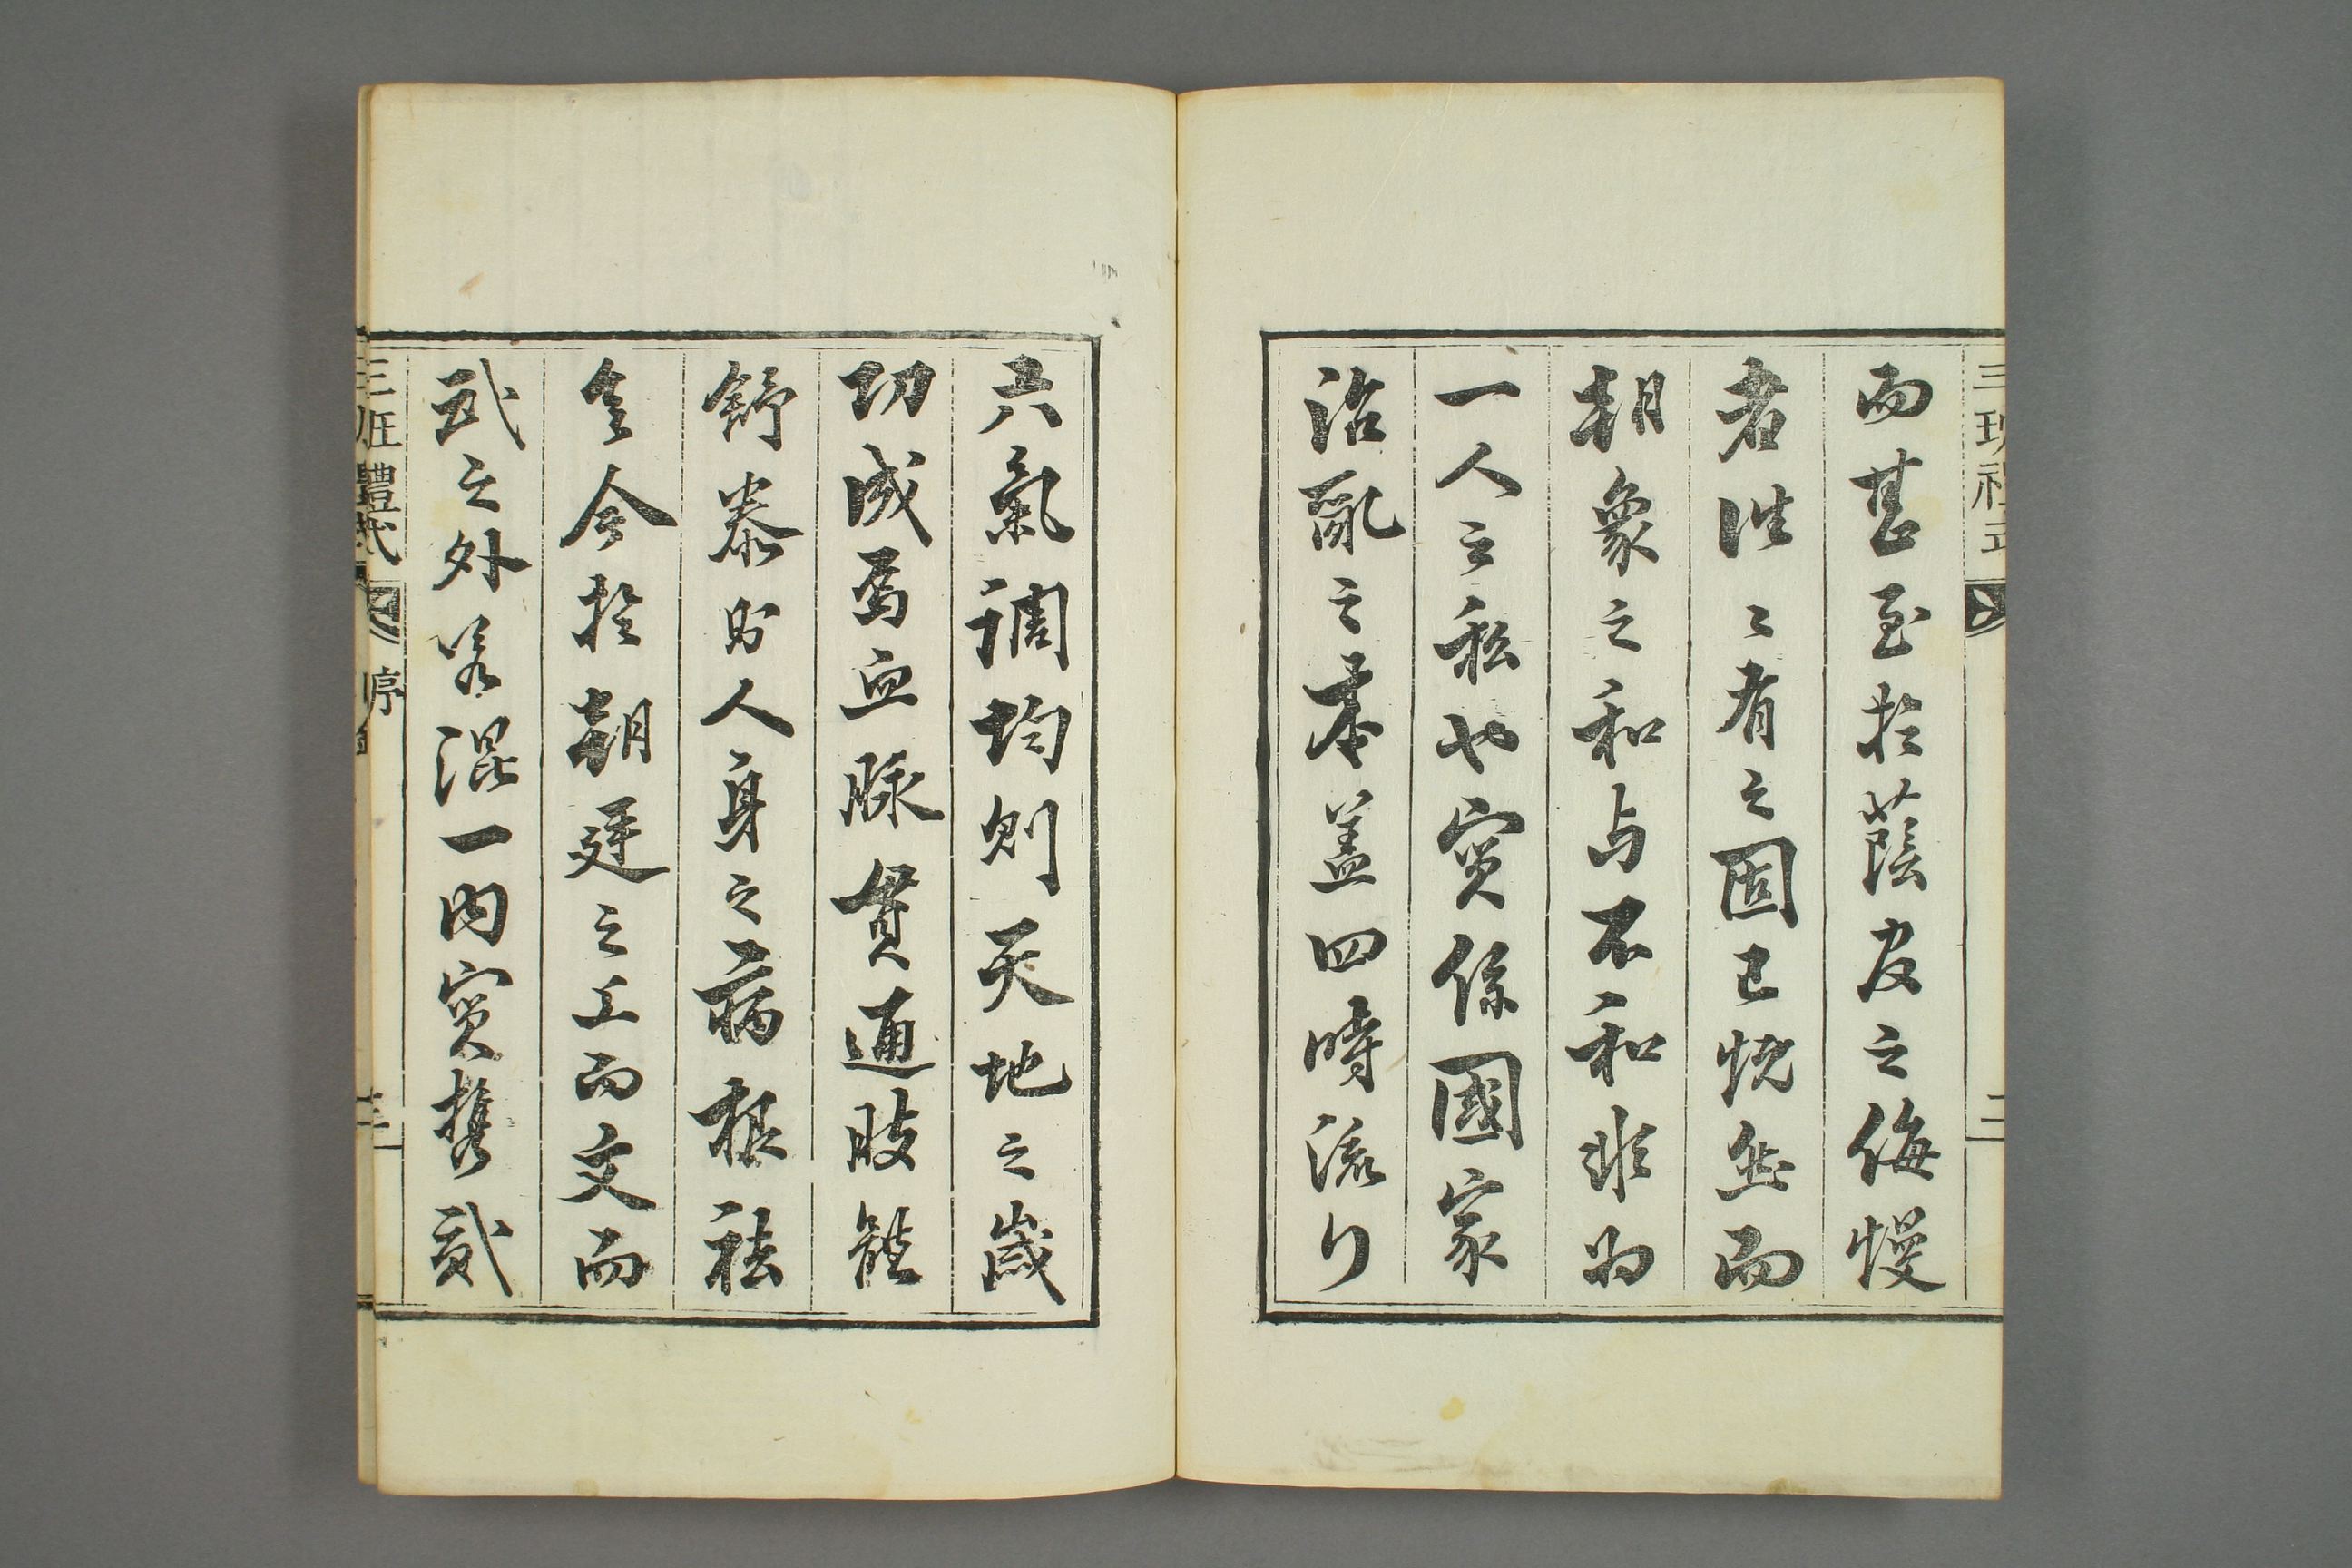 三班禮式 二
而甚至於蔭官之侮慢
者往〻有之固已怳然而
朝象之和与不和非为
一人之私也實係國家
治亂之本盖四時流行
六氣調均則天地之歲
功成焉血脉貫通肢體
舒泰則人身之病根祛
矣今於朝廷之上而文而
武之外若混一内實携貳
三班禮式 序 三